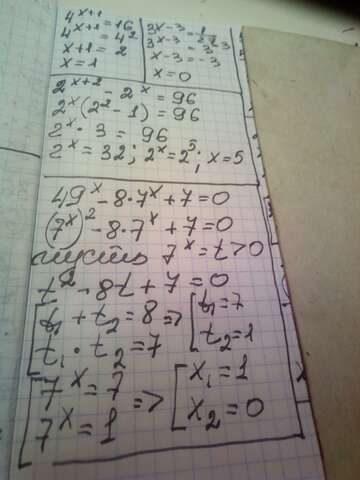 4^(x+1)
4^(x+1) = 16
4^(x+1) = 4²
x+1 = 2
x = 1
3^(x-3) = 1/27
3^(x-3) = 3^(-3)
x-3 = -3
x = 0
2^(x+2) - 2^x = 96
2^x(2² - 1) = 96
2^x · 3 = 96
2^x = 32; 2^x = 2^5; x = 5
49^x - 8·7^x + 7 = 0
(7^x)² - 8·7^x + 7 = 0
пусть 7^x = t > 0
t² - 8t + 7 = 0
[t₁ + t₂ = 8 => [t₁ = 7
t₁ · t₂ = 7 t₂ = 1
[7^x = 7 => [x₁ = 1
7^x = 1 x₂ = 0